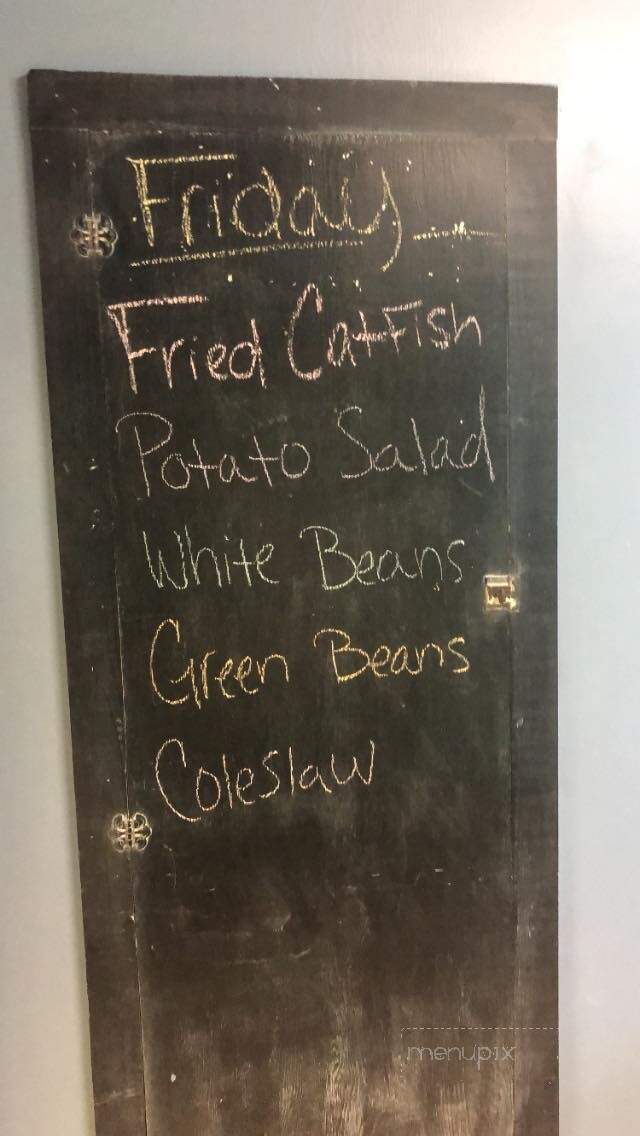 Friday
Fried Catfish
Potato Salad
White Beans
Green Beans
Coleslaw
menupix